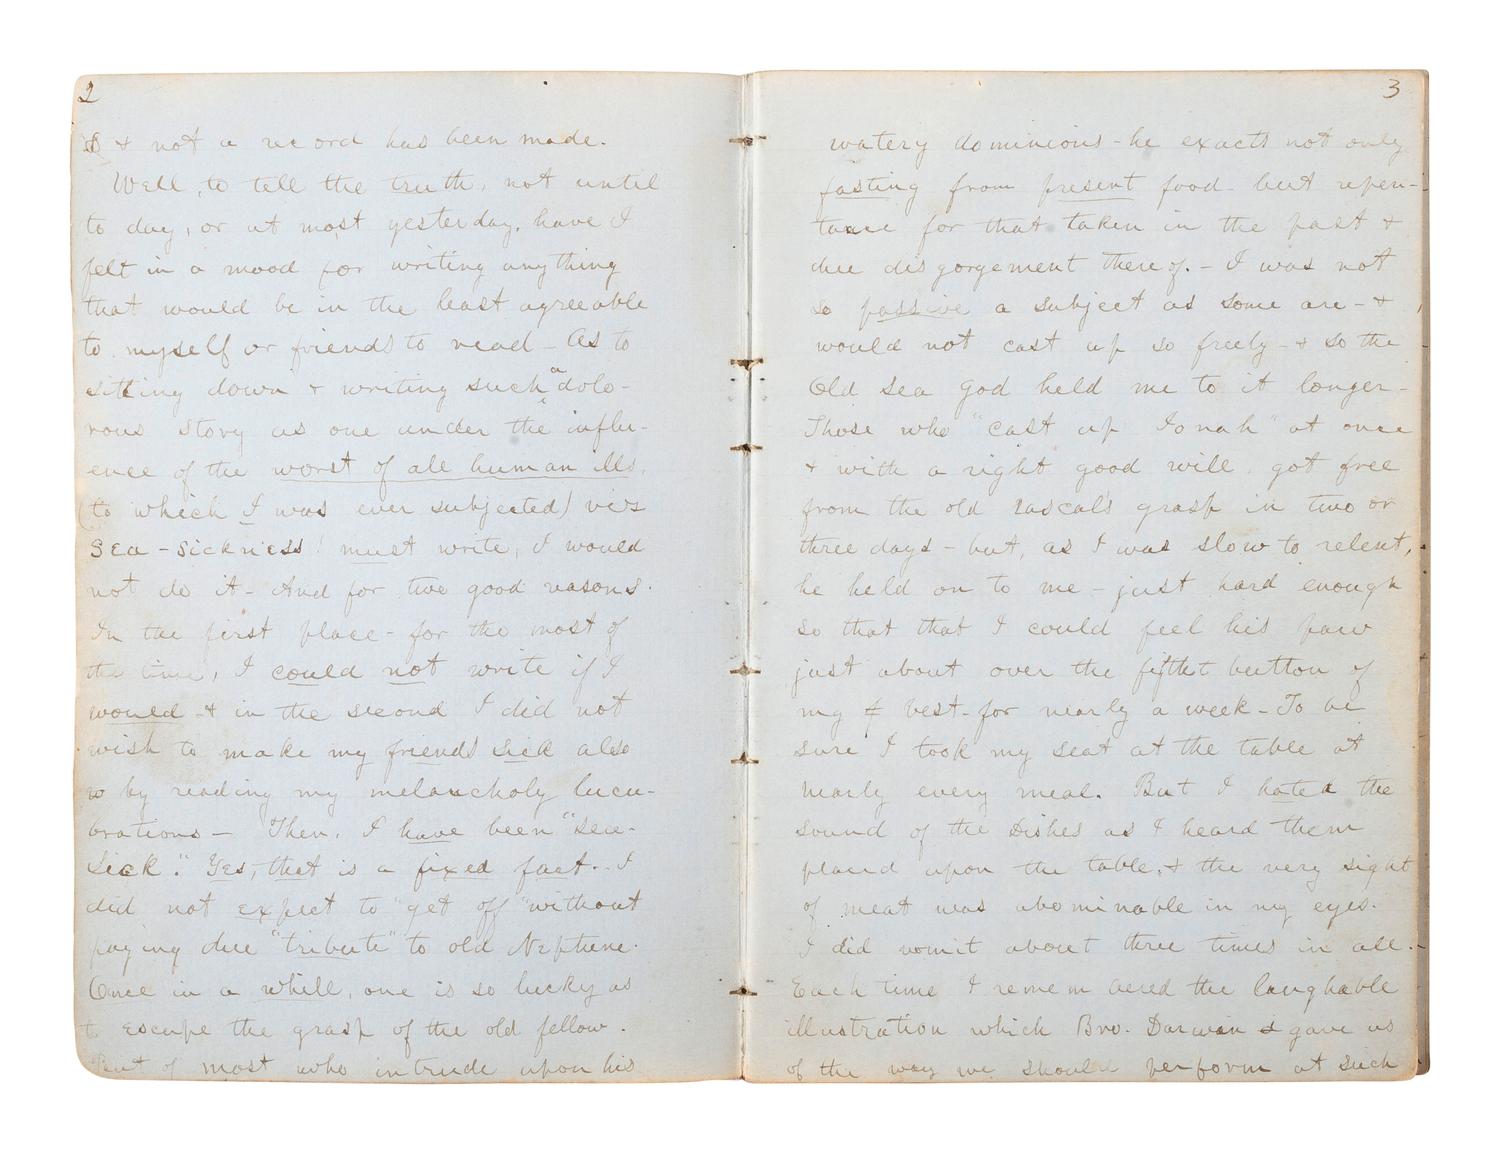 2
& not a record has been made.
Well, to tell the truth, not until
to day, or at most yesterday, have I
felt in a mood for writing anything
that would be in the least agreeable
to myself or friends to read - As to
sitting down & writing such a dolo-
rous story as one under the influ-
ence of the worst of all human ills,
(to which I was ever subjected) viz
Sea-Sickness! must write, I would
not do it - And for two good reasons.
In the first place - for the most of
the time, I could not write if I
would & in the second I did not
wish to make my friends sick also
by reading my melancholy lucu-
brations - Then, I have been "sea-
sick". Yes, that is a fixed fact. - I
did not expect to "get off" without
paying due "tribute" to old Neptune.
Once in a while, one is so lucky as
to escape the grasp of the old fellow.
But of most who intrude upon his
3
watery dominions - he exacts not only
fasting from present food - but repen-
tance for that taken in the past &
due disgorgement thereof. - I was not
so passive a subject as some are - &
would not cast up so freely - & so the
Old Sea god held me to it longer -
Those who "cast up Jonah" at once
& with a right good will, got free
from the old rascal's grasp in two or
three days - but, as I was slow to relent,
he held on to me - just hard enough
so that that I could feel his paw
just about over the fifth button of
my vest - for nearly a week - To be
sure I took my seat at the table at
nearly every meal. But I hated the
sound of the dishes as I heard them
placed upon the table, & the very sight
of meat was abominable in my eyes.
I did vomit about three times in all. -
Each time I remembered the laughable
illustration which Bro. Darwin gave us
of the way we should perform at such